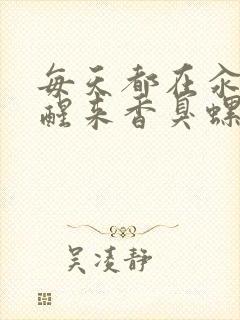 每天都在汆
醒来香臭螺
吴凌静